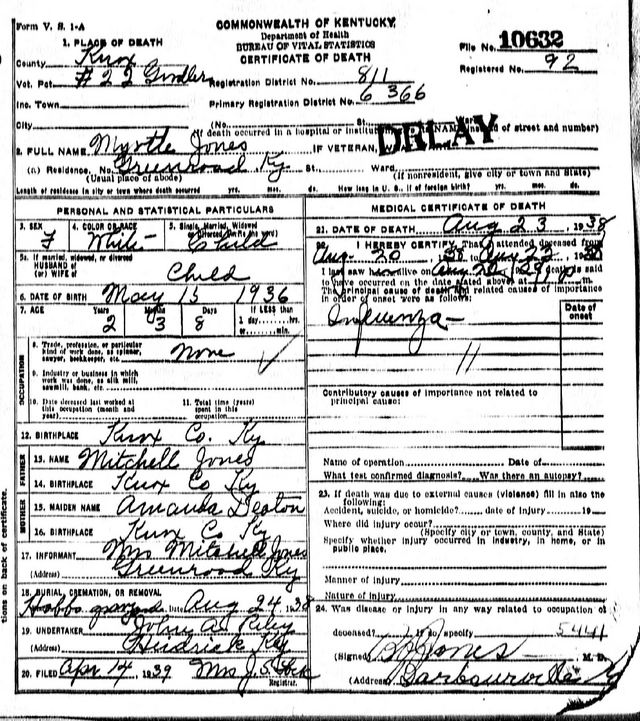 Form V. S. 1-A
COMMONWEALTH OF KENTUCKY
Department of Health
BUREAU OF VITAL STATISTICS
CERTIFICATE OF DEATH
File No. 10632
Registered No. 92
1. PLACE OF DEATH
County Knox
Vot. Pct #22
Registration District No. 811
Inc. Town
Primary Registration District No. 6366
City (No. St. Ward)
(If death occurred in a hospital or institution NAME instead of street and number)
DELAY
2. FULL NAME Myrtle Jones IF VETERAN,
(a) Residence. No. Greenroad Ky St. Ward
(Usual place of abode) (If nonresident, give city or town and State)
Length of residence in city or town where death occurred yrs. mos. ds. How long in U. S., if of foreign birth? yrs. mos. ds.
PERSONAL AND STATISTICAL PARTICULARS
3. SEX F
4. COLOR OR RACE White
5. Single, Married, Widowed or Divorced (write the word) Child
5a. If married, widowed, or divorced
HUSBAND of
(or) WIFE of Child
6. DATE OF BIRTH May 15 1936
7. AGE Years 2 Months 3 Days 8 If LESS than
1 day, hrs.
or min.
OCCUPATION
8. Trade, profession, or particular
kind of work done, as spinner,
sawyer, bookkeeper, etc. None
9. Industry or business in which
work was done, as silk mill,
sawmill, bank, etc.
10. Date deceased last worked at
this occupation (month and
year)
11. Total time (years)
spent in this
occupation
12. BIRTHPLACE Knox Co. Ky
FATHER
13. NAME Mitchell Jones
14. BIRTHPLACE Knox Co Ky
MOTHER
15. MAIDEN NAME Amanda Deaton
16. BIRTHPLACE Knox Co Ky
17. INFORMANT Mrs Mitchell Jones
(Address) Greenroad Ky
18. BURIAL, CREMATION, OR REMOVAL
Hobbs graveyard Date Aug 24 1938
19. UNDERTAKER John A. Riley
(Address) Ky
20. FILED Apr 14, 1939 Mrs J. S.
Registrar.
MEDICAL CERTIFICATE OF DEATH
21. DATE OF DEATH Aug 23, 1938
22. I HEREBY CERTIFY, That I attended deceased from
Aug 20 1938 to Aug 23 1938
I last saw her alive on Aug death is said
to have occurred on the date stated above, at m.
The principal cause of death and related causes of importance
in order of onset were as follows:
Date of
onset
Influenza
11
Contributory causes of importance not related to
principal cause:
Name of operation Date of
What test confirmed diagnosis? Was there an autopsy?
23. If death was due to external causes (violence) fill in also the
following:
Accident, suicide, or homicide? date of injury 19
Where did injury occur?
(Specify city or town, county, and State)
Specify whether injury occurred in industry, in home, or in
public place.
Manner of injury
Nature of injury
24. Was disease or injury in any way related to occupation of
deceased? If so, specify 5441
(Signed) Jones M. D.
(Address) Barbourville Ky
tions on back of certificate.